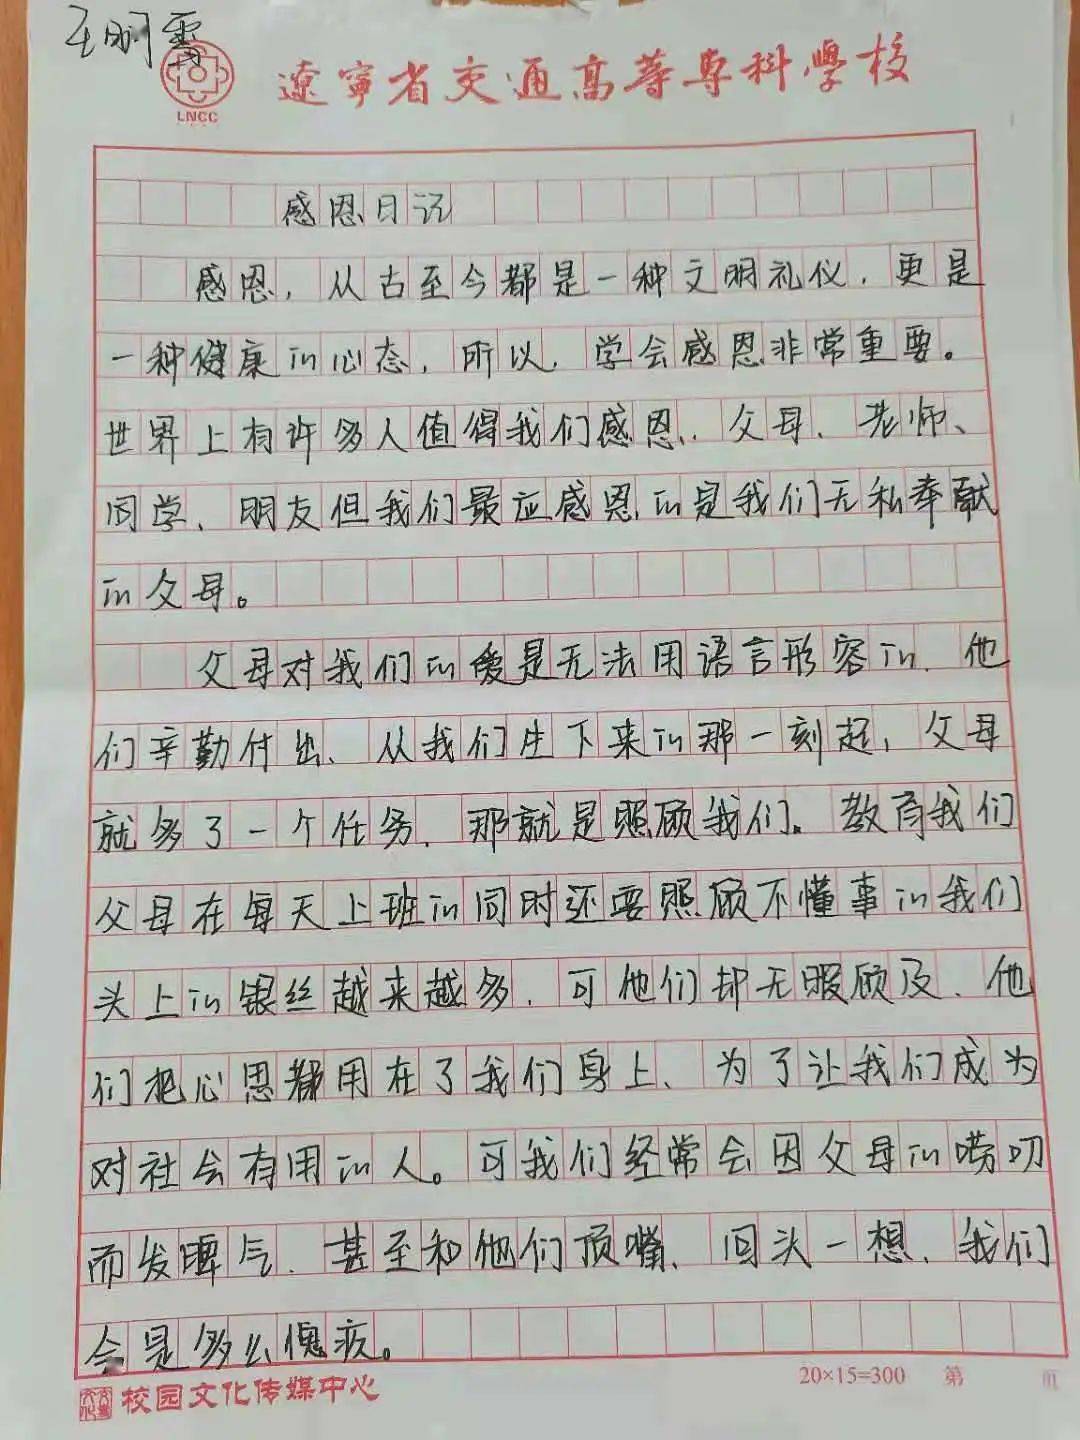 王明雪
LNCC
遼寧省交通高等專科學校
感恩日记
感恩，从古至今都是一种文明礼仪，更是
一种健康的心态，所以，学会感恩非常重要。
世界上有许多人值得我们感恩，父母、老师、
同学、朋友但我们最应感恩的是我们无私奉献
的父母。
父母对我们的爱是无法用语言形容的，他
们辛勤付出、从我们生下来的那一刻起，父母
就多了一个任务，那就是照顾我们。教育我们
父母在每天上班的同时还要照顾不懂事的我们
头上的银丝越来越多，可他们却无暇顾及、他
们把心思都用在了我们身上、为了让我们成为
对社会有用的人。可我们经常会因父母的唠叨
而发脾气、甚至和他们顶嘴、回头一想，我们
会是多么愧疚。
校园文化传媒中心
20×15=300 第 页